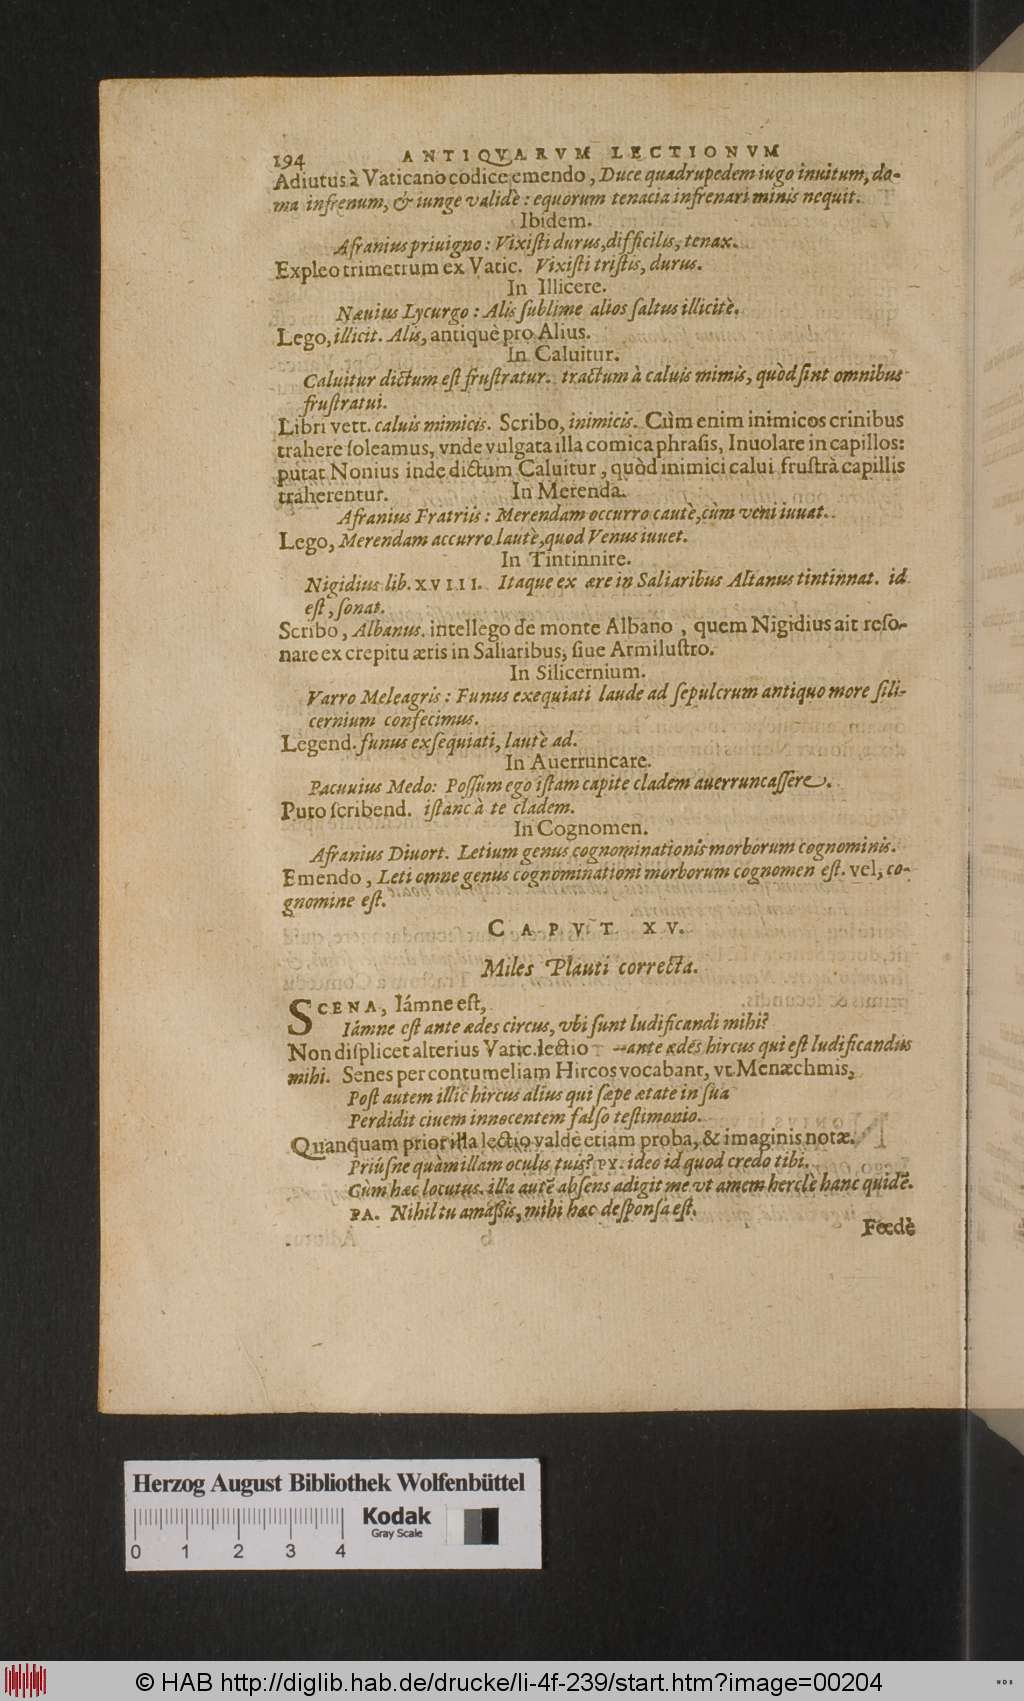 194 ANTIQVARVM LECTIONVM
Adiutus à Vaticano codice emendo, Duce quadrupedem iugo inuitum, do-
ma infrenum, & iunge validè: equorum tenacia infrenari minis nequit.
Ibidem.
Afranius priuigno: Vixiſti durus, difficilis, tenax.
Expleo trimetrum ex Vatic. Vixiſti triſtis, durus.
In Illicere.
Næuius Lycurgo: Alis ſublime alios ſaltus illicitè.
Lego, illicit. Alis, antiquè pro Alius.
In Caluitur.
Caluitur dictum eſt fruſtratur. tractum à caluis mimis, quòd ſint omnibus
fruſtratui.
Libri vett. caluis mimicis. Scribo, inimicis. Cùm enim inimicos crinibus
trahere ſoleamus, vnde vulgata illa comica phraſis, Inuolare in capillos:
putat Nonius inde dictum Caluitur, quòd inimici calui fruſtrà capillis
traherentur. In Merenda.
Afranius Fratriis: Merendam occurro cautè, cùm veni iuuat.
Lego, Merendam accurro lautè, quod Venus iuuet.
In Tintinnire.
Nigidius lib. XVIII. Itaque ex ære in Saliaribus Altanus tintinnat. id
eſt, ſonat.
Scribo, Albanus. intellego de monte Albano, quem Nigidius ait reſo-
nare ex crepitu æris in Saliaribus, ſiue Armiluſtro.
In Silicernium.
Varro Meleagris: Funus exequiati laude ad ſepulcrum antiquo more ſili-
cernium confecimus.
Legend. funus exſequiati, lautè ad.
In Auerruncare.
Pacuuius Medo: Poſſum ego iſtam capite cladem auerruncaſſere.
Puto ſcribend. iſtanc à te cladem.
In Cognomen.
Afranius Diuort. Letium genus cognominationis morborum cognominis.
Emendo, Leti omne genus cognominationi morborum cognomen eſt. vel, co-
gnomine eſt.
CAPVT XV.
Miles Plauti correcta.
SCENA, Iámne eſt,
Iámne eſt ante ædes circus, vbi ſunt ludificandi mihi?
Non diſplicet alterius Vatic. lectio —ante ædes hircus qui eſt ludificandus
mihi. Senes per contumeliam Hircos vocabant, vt Menæchmis,
Poſt autem illic hircus alius qui ſæpe ætate in ſua
Perdidit ciuem innocentem falſo teſtimonio.
Quanquam prior illa lectio valdè etiam proba, & imaginis notæ.
Priúſne quàm illam oculis tuis? PY. ideo id quod credo tibi.
Cùm hæc locutus. illa autē abſens adigit me vt amem herclè hanc quidē.
PA. Nihil tu amaſſis, mihi hæc deſponſa eſt.
Fœdè
Herzog August Bibliothek Wolfenbüttel
0 1 2 3 4
Kodak
Gray Scale
© HAB http://diglib.hab.de/drucke/li-4f-239/start.htm?image=00204